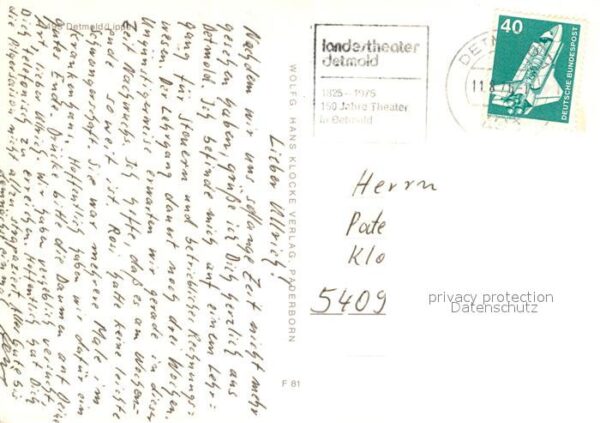 4930 Detmold/Lippe
Lieber Ullrich!
Nachdem wir uns solange Zeit nicht mehr
gesehen haben, grüße ich Dich herzlich aus
Detmold. Ich befinde mich auf einem Lehr-
gang für Steuern und betriebliches Rechnungs-
wesen. Der Lehrgang dauert noch drei Wochen.
Ungünstigerweise erwarten wir gerade in dieser
Zeit Nachwuchs. Ich hoffe, daß es am Wochen-
ende so weit ist. Rosi hatte keine leichte
Schwangerschaft. Sie war mehrere Male im
Krankenhaus. Hoffentlich haben wir dafür ein
gutes Ende. Drücke bitte die Daumen auf Deine
Art, lieber Ullrich. Wir haben vergeblich versucht,
Dich telefonisch zu erreichen. Hoffentlich hat Dich
die nicht allzu strapaziert. Alles Gute bis
demnächst einmal
WOLFG. HANS KLOCKE VERLAG, PADERBORN
F 81
landestheater
detmold
1825-1975
150 Jahre Theater
in Detmold
DETMOLD
11.8.7
40
DEUTSCHE BUNDESPOST
Herrn
Pate
Klo
5409
privacy protection
Datenschutz